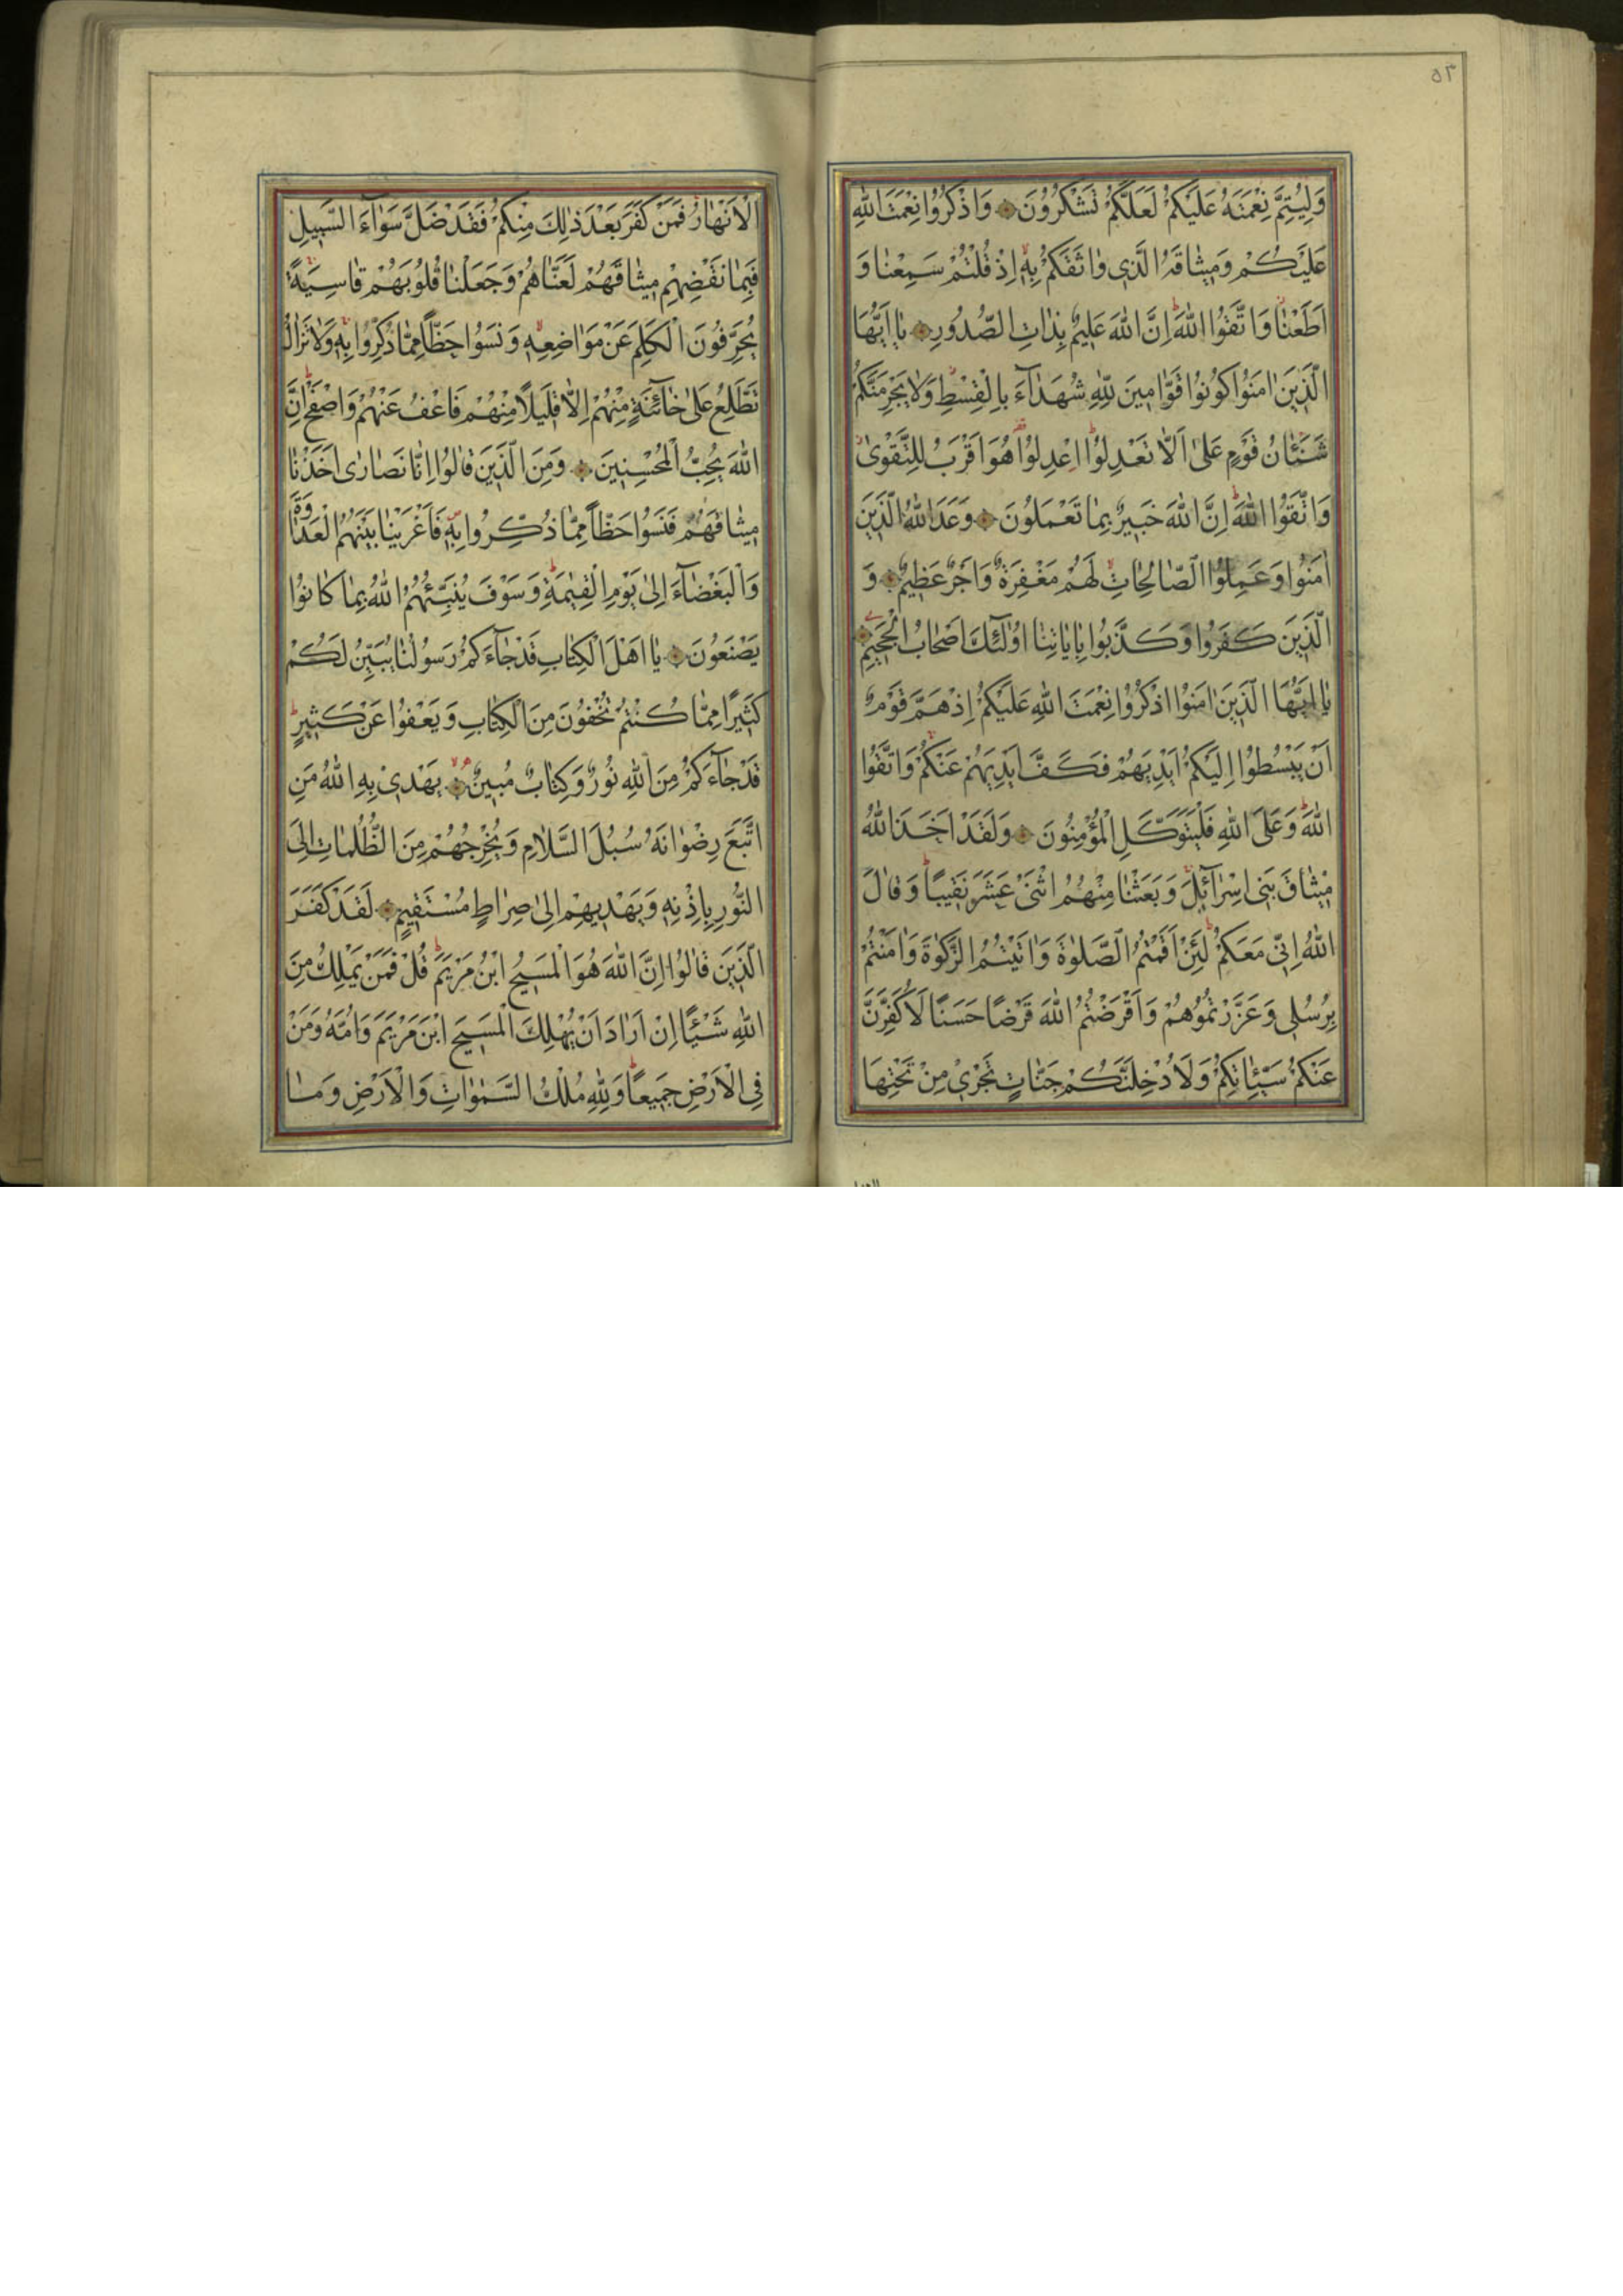 ٥٣
وَلِيُتِمَّ نِعْمَتَهُ عَلَيْكُمْ لَعَلَّكُمْ تَشْكُرُونَ وَاذْكُرُوا نِعْمَتَ اللّٰهِ
عَلَيْكُمْ وَمِيثَاقَهُ الَّذِي وَاثَقَكُمْ بِهِ إِذْ قُلْتُمْ سَمِعْنَا وَ
اَطَعْنَا وَاتَّقُوا اللّٰهَ اِنَّ اللّٰهَ عَلِيمٌ بِذَاتِ الصُّدُورِ يَا اَيُّهَا
الَّذِينَ اٰمَنُوا كُونُوا قَوَّامِينَ لِلّٰهِ شُهَدَآءَ بِالْقِسْطِ وَلَا يَجْرِمَنَّكُمْ
شَنَئَانُ قَوْمٍ عَلىٰ اَلَّا تَعْدِلُوا اعْدِلُوا هُوَ اَقْرَبُ لِلتَّقْوىٰ
وَاتَّقُوا اللّٰهَ اِنَّ اللّٰهَ خَبِيرٌ بِمَا تَعْمَلُونَ وَعَدَ اللّٰهُ الَّذِينَ
اٰمَنُوا وَعَمِلُوا الصَّالِحَاتِ لَهُمْ مَغْفِرَةٌ وَاَجْرٌ عَظِيمٌ وَ
الَّذِينَ كَفَرُوا وَكَذَّبُوا بِاٰيَاتِنَا اُولٰئِكَ اَصْحَابُ الْجَحِيمِ
يَا اَيُّهَا الَّذِينَ اٰمَنُوا اذْكُرُوا نِعْمَتَ اللّٰهِ عَلَيْكُمْ اِذْ هَمَّ قَوْمٌ
اَنْ يَبْسُطُوا اِلَيْكُمْ اَيْدِيَهُمْ فَكَفَّ اَيْدِيَهُمْ عَنْكُمْ وَاتَّقُوا
اللّٰهَ وَعَلَى اللّٰهِ فَلْيَتَوَكَّلِ الْمُؤْمِنُونَ وَلَقَدْ اَخَذَ اللّٰهُ
مِيثَاقَ بَنِي اِسْرَآئِلَ وَبَعَثْنَا مِنْهُمُ اثْنَيْ عَشَرَ نَقِيبًا وَقَالَ
اللّٰهُ اِنِّي مَعَكُمْ لَئِنْ اَقَمْتُمُ الصَّلٰوةَ وَاٰتَيْتُمُ الزَّكٰوةَ وَاٰمَنْتُمْ
بِرُسُلِي وَعَزَّرْتُمُوهُمْ وَاَقْرَضْتُمُ اللّٰهَ قَرْضًا حَسَنًا لَاُكَفِّرَنَّ
عَنْكُمْ سَيِّئَاتِكُمْ وَلَاُدْخِلَنَّكُمْ جَنَّاتٍ تَجْرِي مِنْ تَحْتِهَا
الْاَنْهَارُ فَمَنْ كَفَرَ بَعْدَ ذٰلِكَ مِنْكُمْ فَقَدْ ضَلَّ سَوَآءَ السَّبِيلِ
فَبِمَا نَقْضِهِمْ مِيثَاقَهُمْ لَعَنَّاهُمْ وَجَعَلْنَا قُلُوبَهُمْ قَاسِيَةً
يُحَرِّفُونَ الْكَلِمَ عَنْ مَوَاضِعِهِ وَنَسُوا حَظًّا مِمَّا ذُكِّرُوا بِهِ وَلَا تَزَالُ
تَطَّلِعُ عَلىٰ خَآئِنَةٍ مِنْهُمْ اِلَّا قَلِيلًا مِنْهُمْ فَاعْفُ عَنْهُمْ وَاصْفَحْ اِنَّ
اللّٰهَ يُحِبُّ الْمُحْسِنِينَ وَمِنَ الَّذِينَ قَالُوا اِنَّا نَصَارٰى اَخَذْنَا
مِيثَاقَهُمْ فَنَسُوا حَظًّا مِمَّا ذُكِّرُوا بِهِ فَاَغْرَيْنَا بَيْنَهُمُ الْعَدَاوَةَ
وَالْبَغْضَآءَ اِلىٰ يَوْمِ الْقِيٰمَةِ وَسَوْفَ يُنَبِّئُهُمُ اللّٰهُ بِمَا كَانُوا
يَصْنَعُونَ يَا اَهْلَ الْكِتَابِ قَدْ جَآءَكُمْ رَسُولُنَا يُبَيِّنُ لَكُمْ
كَثِيرًا مِمَّا كُنْتُمْ تُخْفُونَ مِنَ الْكِتَابِ وَيَعْفُوا عَنْ كَثِيرٍ
قَدْ جَآءَكُمْ مِنَ اللّٰهِ نُورٌ وَكِتَابٌ مُبِينٌ يَهْدِي بِهِ اللّٰهُ مَنِ
اتَّبَعَ رِضْوَانَهُ سُبُلَ السَّلَامِ وَيُخْرِجُهُمْ مِنَ الظُّلُمَاتِ اِلَى
النُّورِ بِاِذْنِهِ وَيَهْدِيهِمْ اِلىٰ صِرَاطٍ مُسْتَقِيمٍ لَقَدْ كَفَرَ
الَّذِينَ قَالُوا اِنَّ اللّٰهَ هُوَ الْمَسِيحُ ابْنُ مَرْيَمَ قُلْ فَمَنْ يَمْلِكُ مِنَ
اللّٰهِ شَيْئًا اِنْ اَرَادَ اَنْ يُهْلِكَ الْمَسِيحَ ابْنَ مَرْيَمَ وَاُمَّهُ وَمَنْ
فِي الْاَرْضِ جَمِيعًا وَلِلّٰهِ مُلْكُ السَّمٰوَاتِ وَالْاَرْضِ وَمَا